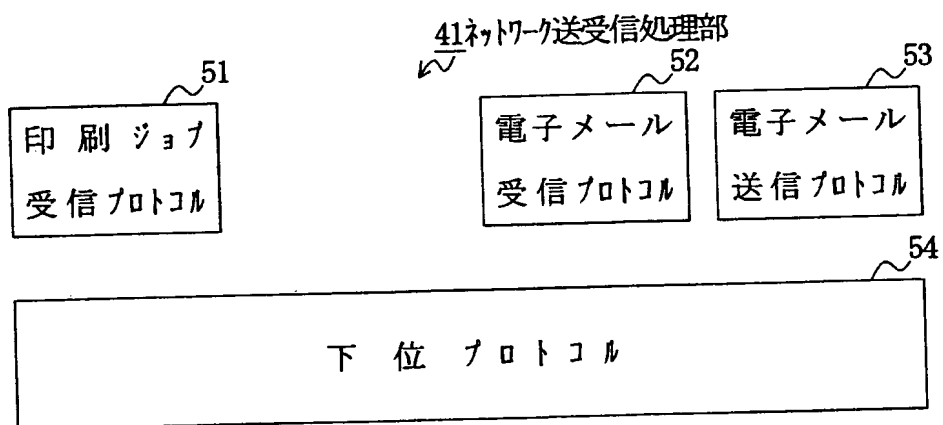 41ネットワーク送受信処理部
51
52
53
印刷ジョブ
受信プロトコル
電子メール
受信プロトコル
電子メール
送信プロトコル
54
下位プロトコル